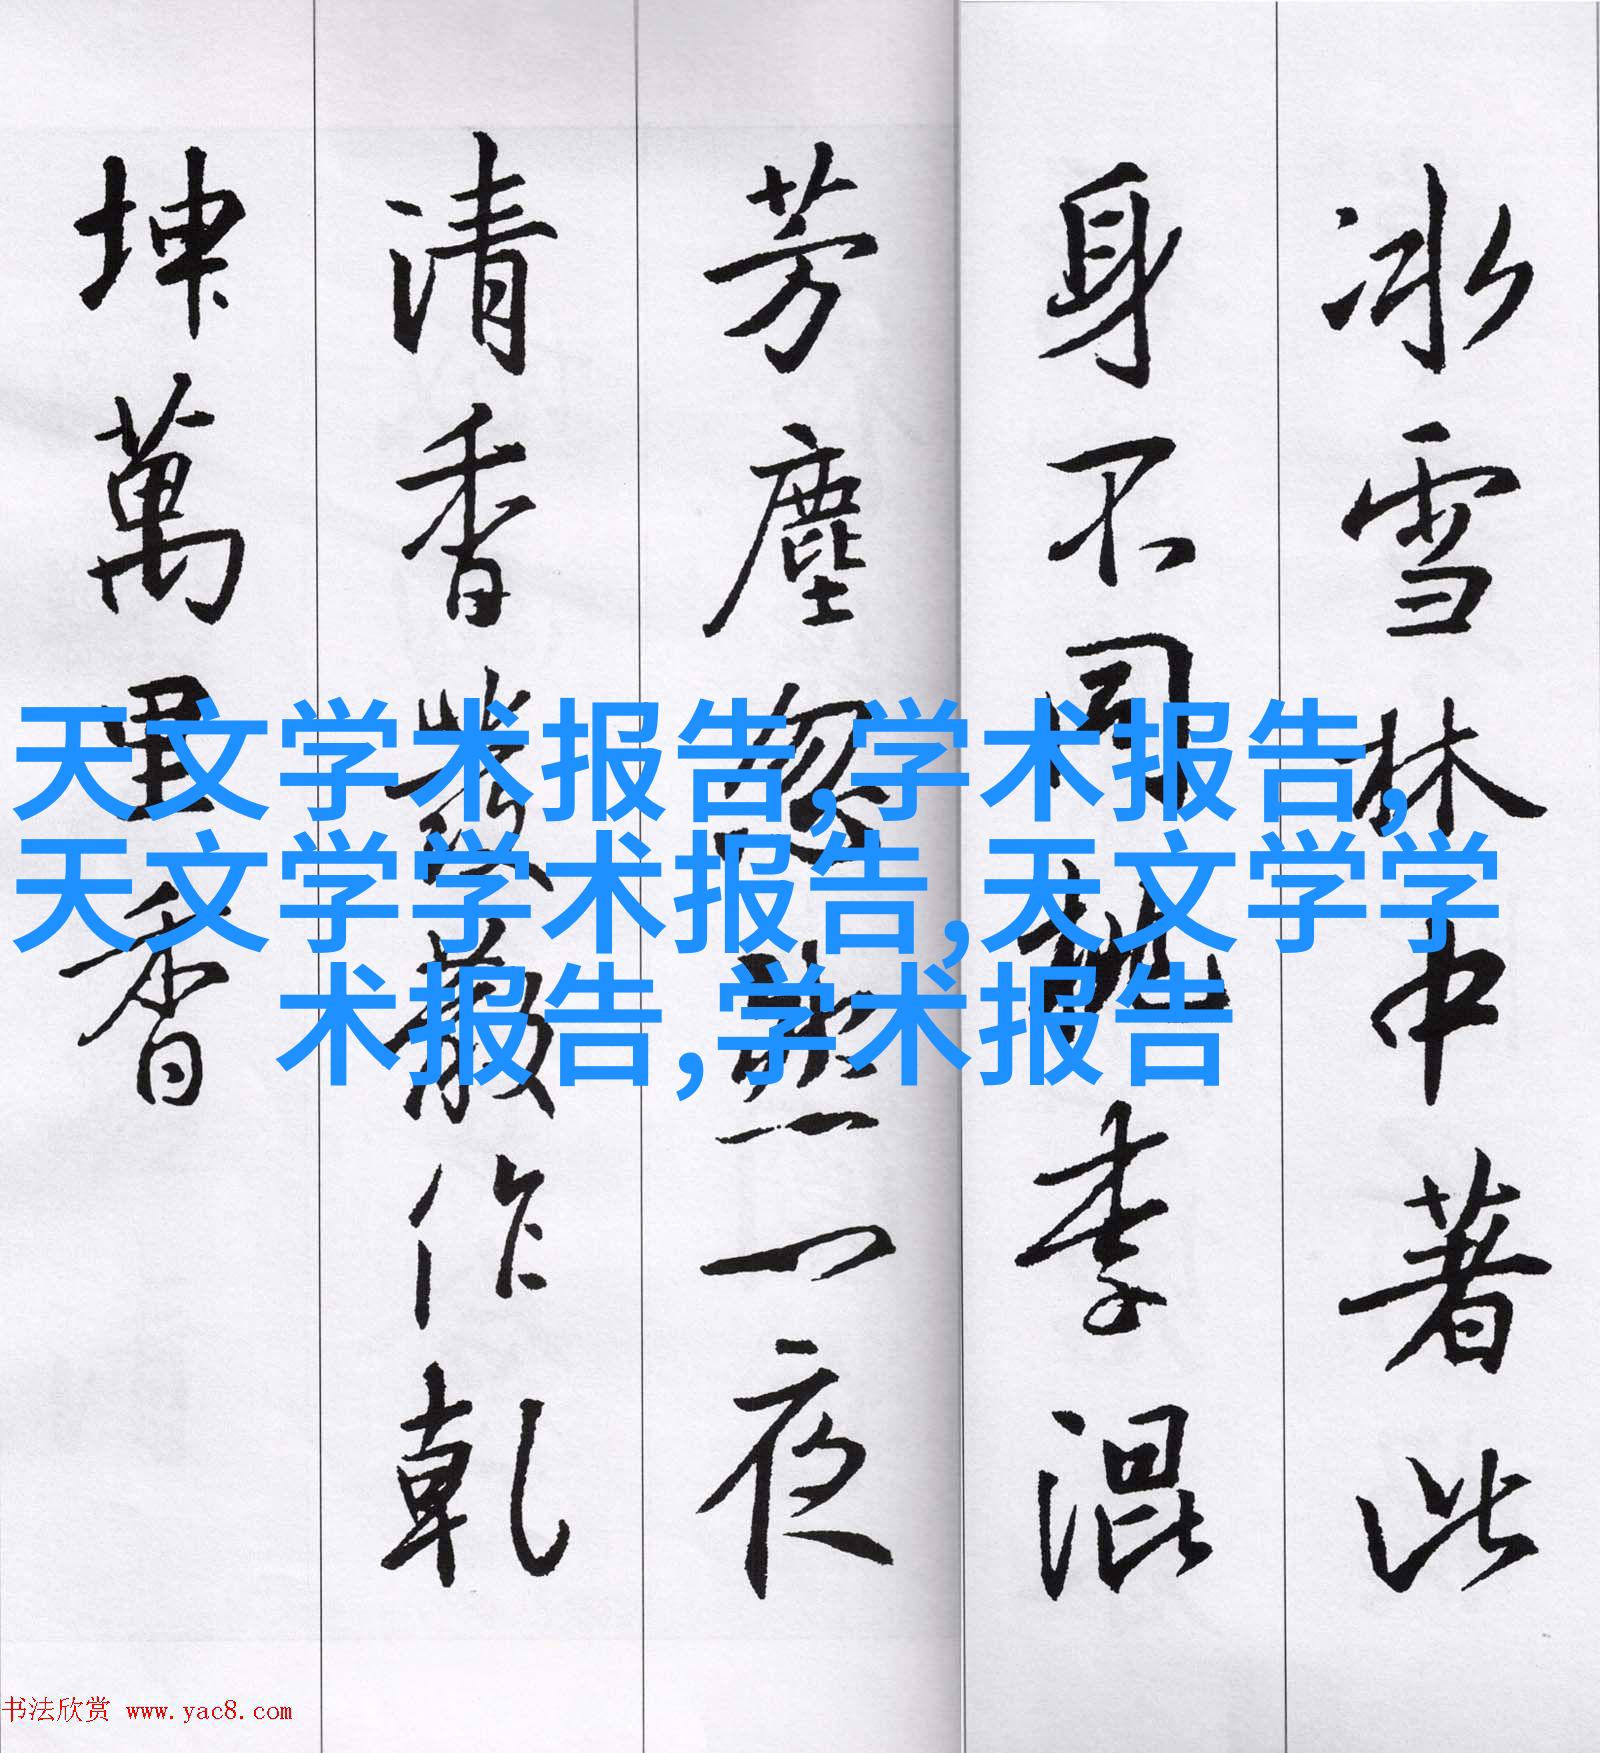 冰雪林中著此
身不同桃李混
芳塵忽然一夜
清香發散作乾
坤萬里香
天文学术报告,学术报告,
天文学学术报告,天文学学
术报告,学术报告
书法欣赏 www.yac8.com